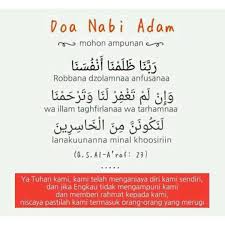 Doa Nabi Adam
mohon ampunan
رَبَّنَا ظَلَمْنَا أَنْفُسَنَا
Robbana dzolamnaa anfusanaa
وَإِنْ لَمْ تَغْفِرْ لَنَا وَتَرْحَمْنَا
wa illam taghfirlanaa wa tarhamnaa
لَنَكُونَنَّ مِنَ الْخَاسِرِينَ
lanakuunanna minal khoosiriin
(Q.S.Al-A'rof: 23)
Ya Tuhan kami, kami telah menganiaya diri kami sendiri,
dan jika Engkau tidak mengampuni kami
dan memberi rahmat kepada kami,
niscaya pastilah kami termasuk orang-orang yang merugi